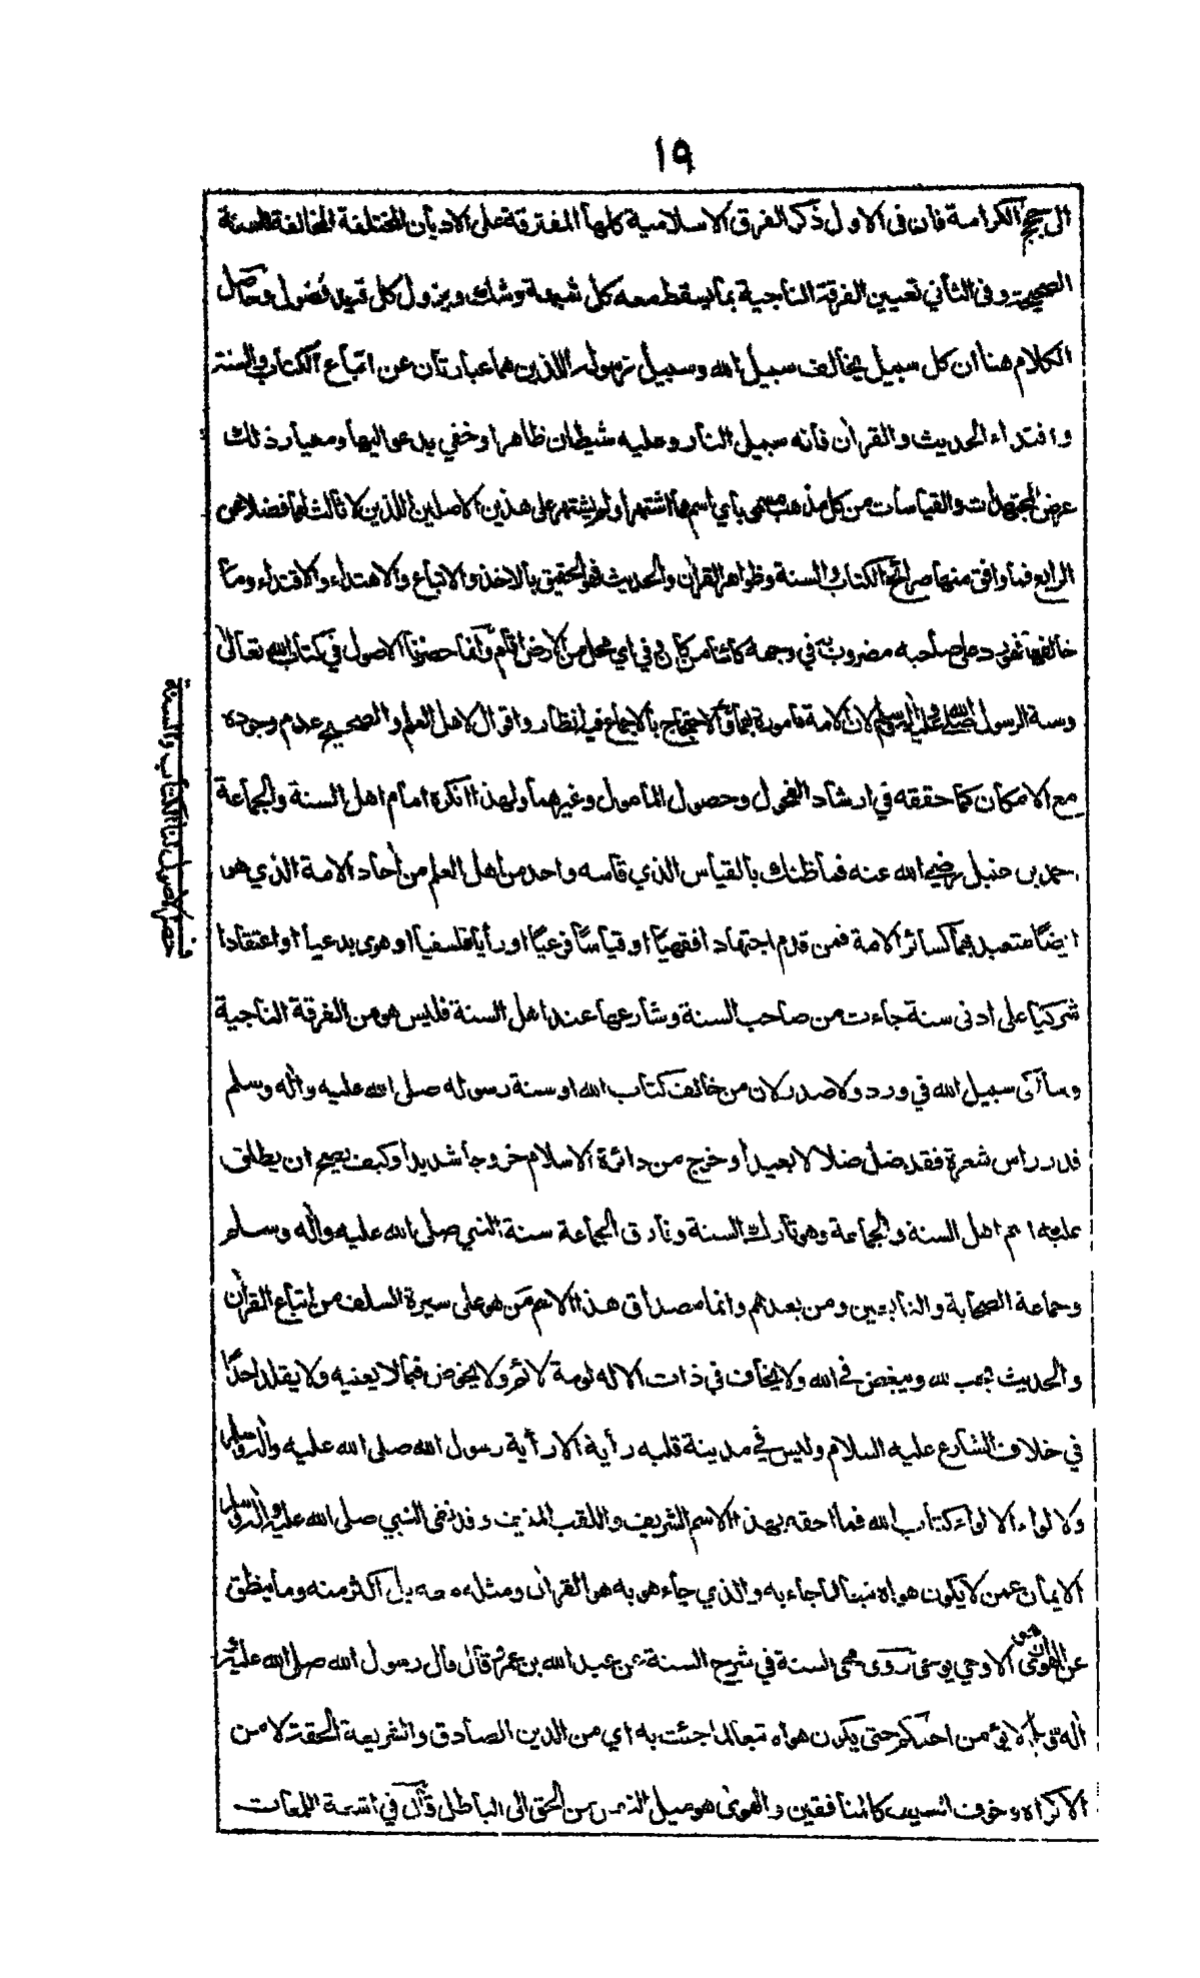 ١٩
الى حجج الكرامة فان في الاول ذكر الفرق الاسلامية كلها المفترقة على الاديان المختلفة المخالفة للسنة
الصحيحة وفي الثاني تعيين الفرقة الناجية بما يسقط معه كل شبهة وشك ويزول كل قيد فضول وحاصل
الكلام هنا ان كل سبيل يخالف سبيل الله وسبيل رسوله اللذين هما عبارتان عن اتباع الكتاب والسنة
واقتداء الحديث والقران فانه سبيل النار وعليه شيطان ظاهر او خفي يدعو اليها ومعيار ذلك
عرض المجتهدات والقياسات من كل مذهب مسمى باي اسم ما اشتهر او لم يشتهر على هذين الاصلين اللذين لا ثالث لهما فضلا عن
الرابع فما وافق منها صرائح الكتاب والسنة وظواهر القران والحديث فهو الحقيق بالاخذ والاتباع والاهتداء والاقتداء وما
خالفها فهو رد على صاحبه مضروب به في وجهه كائنا من كان وفي اي محل من الارض اقام وانما حصرنا الاصول في كتاب الله تعالى
وسنة الرسول صلى الله عليه واله وسلم لان الامة مامورة بهما والاحتجاج بالاجماع فيه انظار واقوال لاهل العلم والصحيح عدم وجوده
مع الامكان كما حققه في ارشاد الفحول وحصول المامول وغيرهما ولهذا انكره امام اهل السنة والجماعة
احمد بن حنبل رضي الله عنه فما ظنك بالقياس الذي قاسه واحد من اهل العلم من أحاد الامة الذي هو
ايضًا متعبد بهما كسائر الامة فمن قدم اجتهادا فقهيًا او قياسًا فرعيًا او رأيا فلسفيا او هوى بدعيا او اعتقادا
شركيا على ادنى سنة جاءت من صاحب السنة وشارعها عند اهل السنة فليس هو من الفرقة الناجية
وسالكي سبيل الله في ورد ولا صدر لان من خالف كتاب الله او سنة رسوله صلى الله عليه واله وسلم
قدر راس شعرة فقد ضل ضلالا بعيدا وخرج من دائرة الاسلام خروجا شديدا وكيف يصح ان يطلق
عليه اسم اهل السنة والجماعة وهو تارك السنة وتارك الجماعة سنة النبي صلى الله عليه واله وسلم
وجماعة الصحابة والتابعين ومن بعدهم وانما مصداق هذا الاسم من هو على سيرة السلف من اتباع القران
والحديث يحب لله ويبغض في الله ولا يخاف في ذات الاله لومة لائم ولا يخوض فيما لا يعنيه ولا يقلد احدًا
في خلاف الشارع عليه السلام وليس في مدينة قلبه رأية الا رأية رسول الله صلى الله عليه واله وسلم
ولا لواء الا لواء كتاب الله فما احقه بهذا الاسم الشريف واللقب المنيف وقد نفى النبي صلى الله عليه واله وسلم
الايمان عمن لا يكون هواه تبعا لما جاء به والذي جاء هو به هو القران ومثله معه بل اكثر منه وما ينطق
عن الهوى ان هو الا وحي يوحى روى محي السنة في شرح السنة عن عبد الله بن عمر قال قال رسول الله صلى الله عليه و
اله وسلم لا يؤمن احدكم حتى يكون هواه تبعا لما جئت به اي من الدين الصادق والشريعة الحقة لا من
الاكراه وخوف السيف كالمنافقين والهوى هو ميل النفس من الحق الى الباطل قال في اشعة اللمعات
ف حصر الاصول في الكتاب والسنة